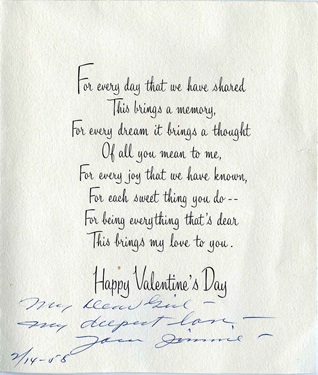 For every day that we have shared
This brings a memory,
For every dream it brings a thought
Of all you mean to me,
For every joy that we have known,
For each sweet thing you do--
For being everything that's dear
This brings my love to you.
Happy Valentine's Day
My Dear Girl -
my deepest love,
Your Jimmie -
2/14-58